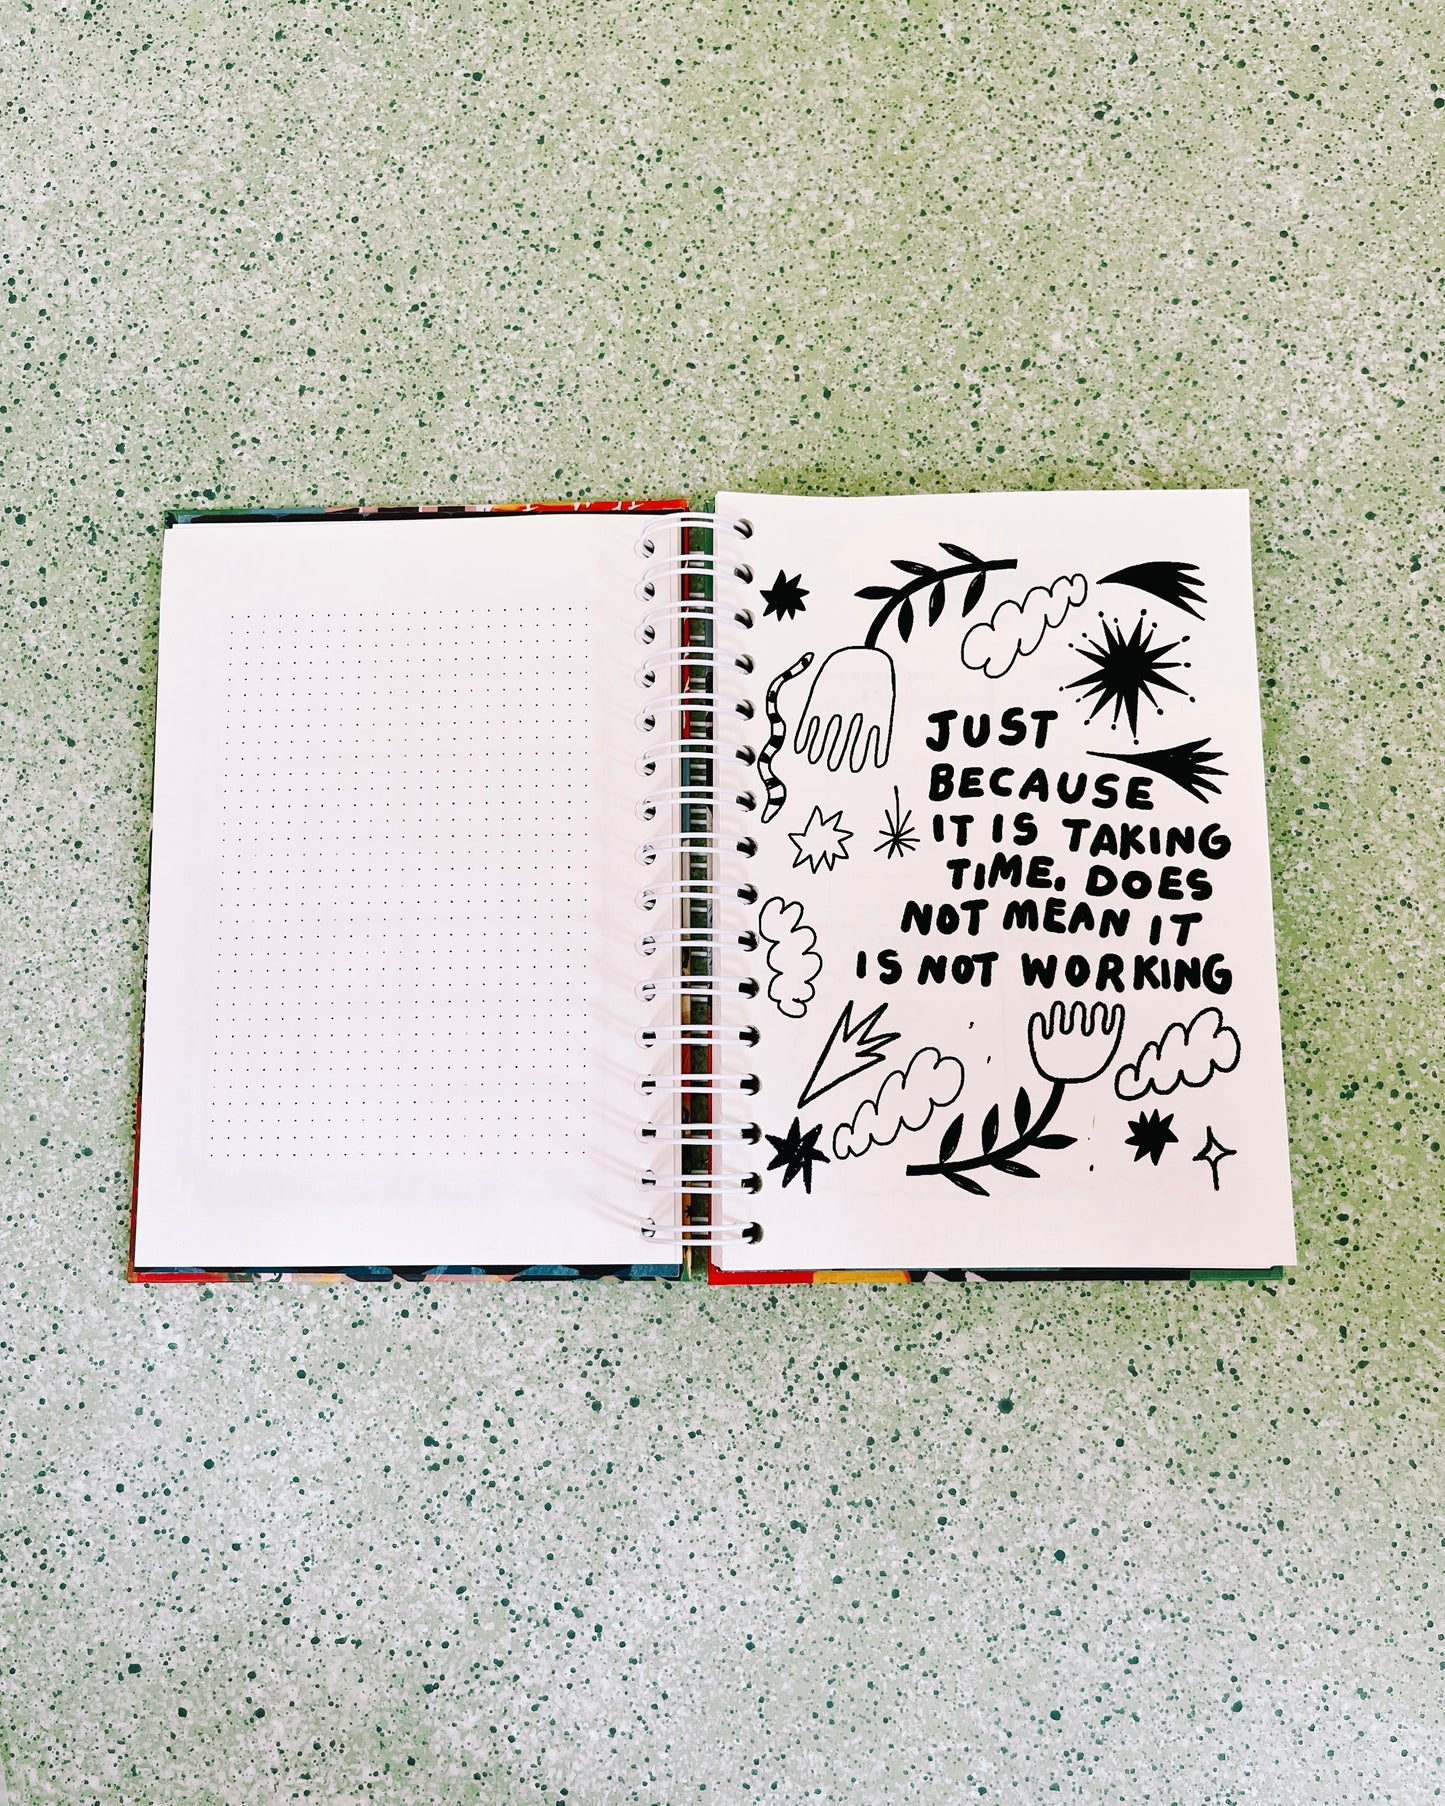 JUST
BECAUSE
IT IS TAKING
TIME. DOES
NOT MEAN IT
IS NOT WORKING